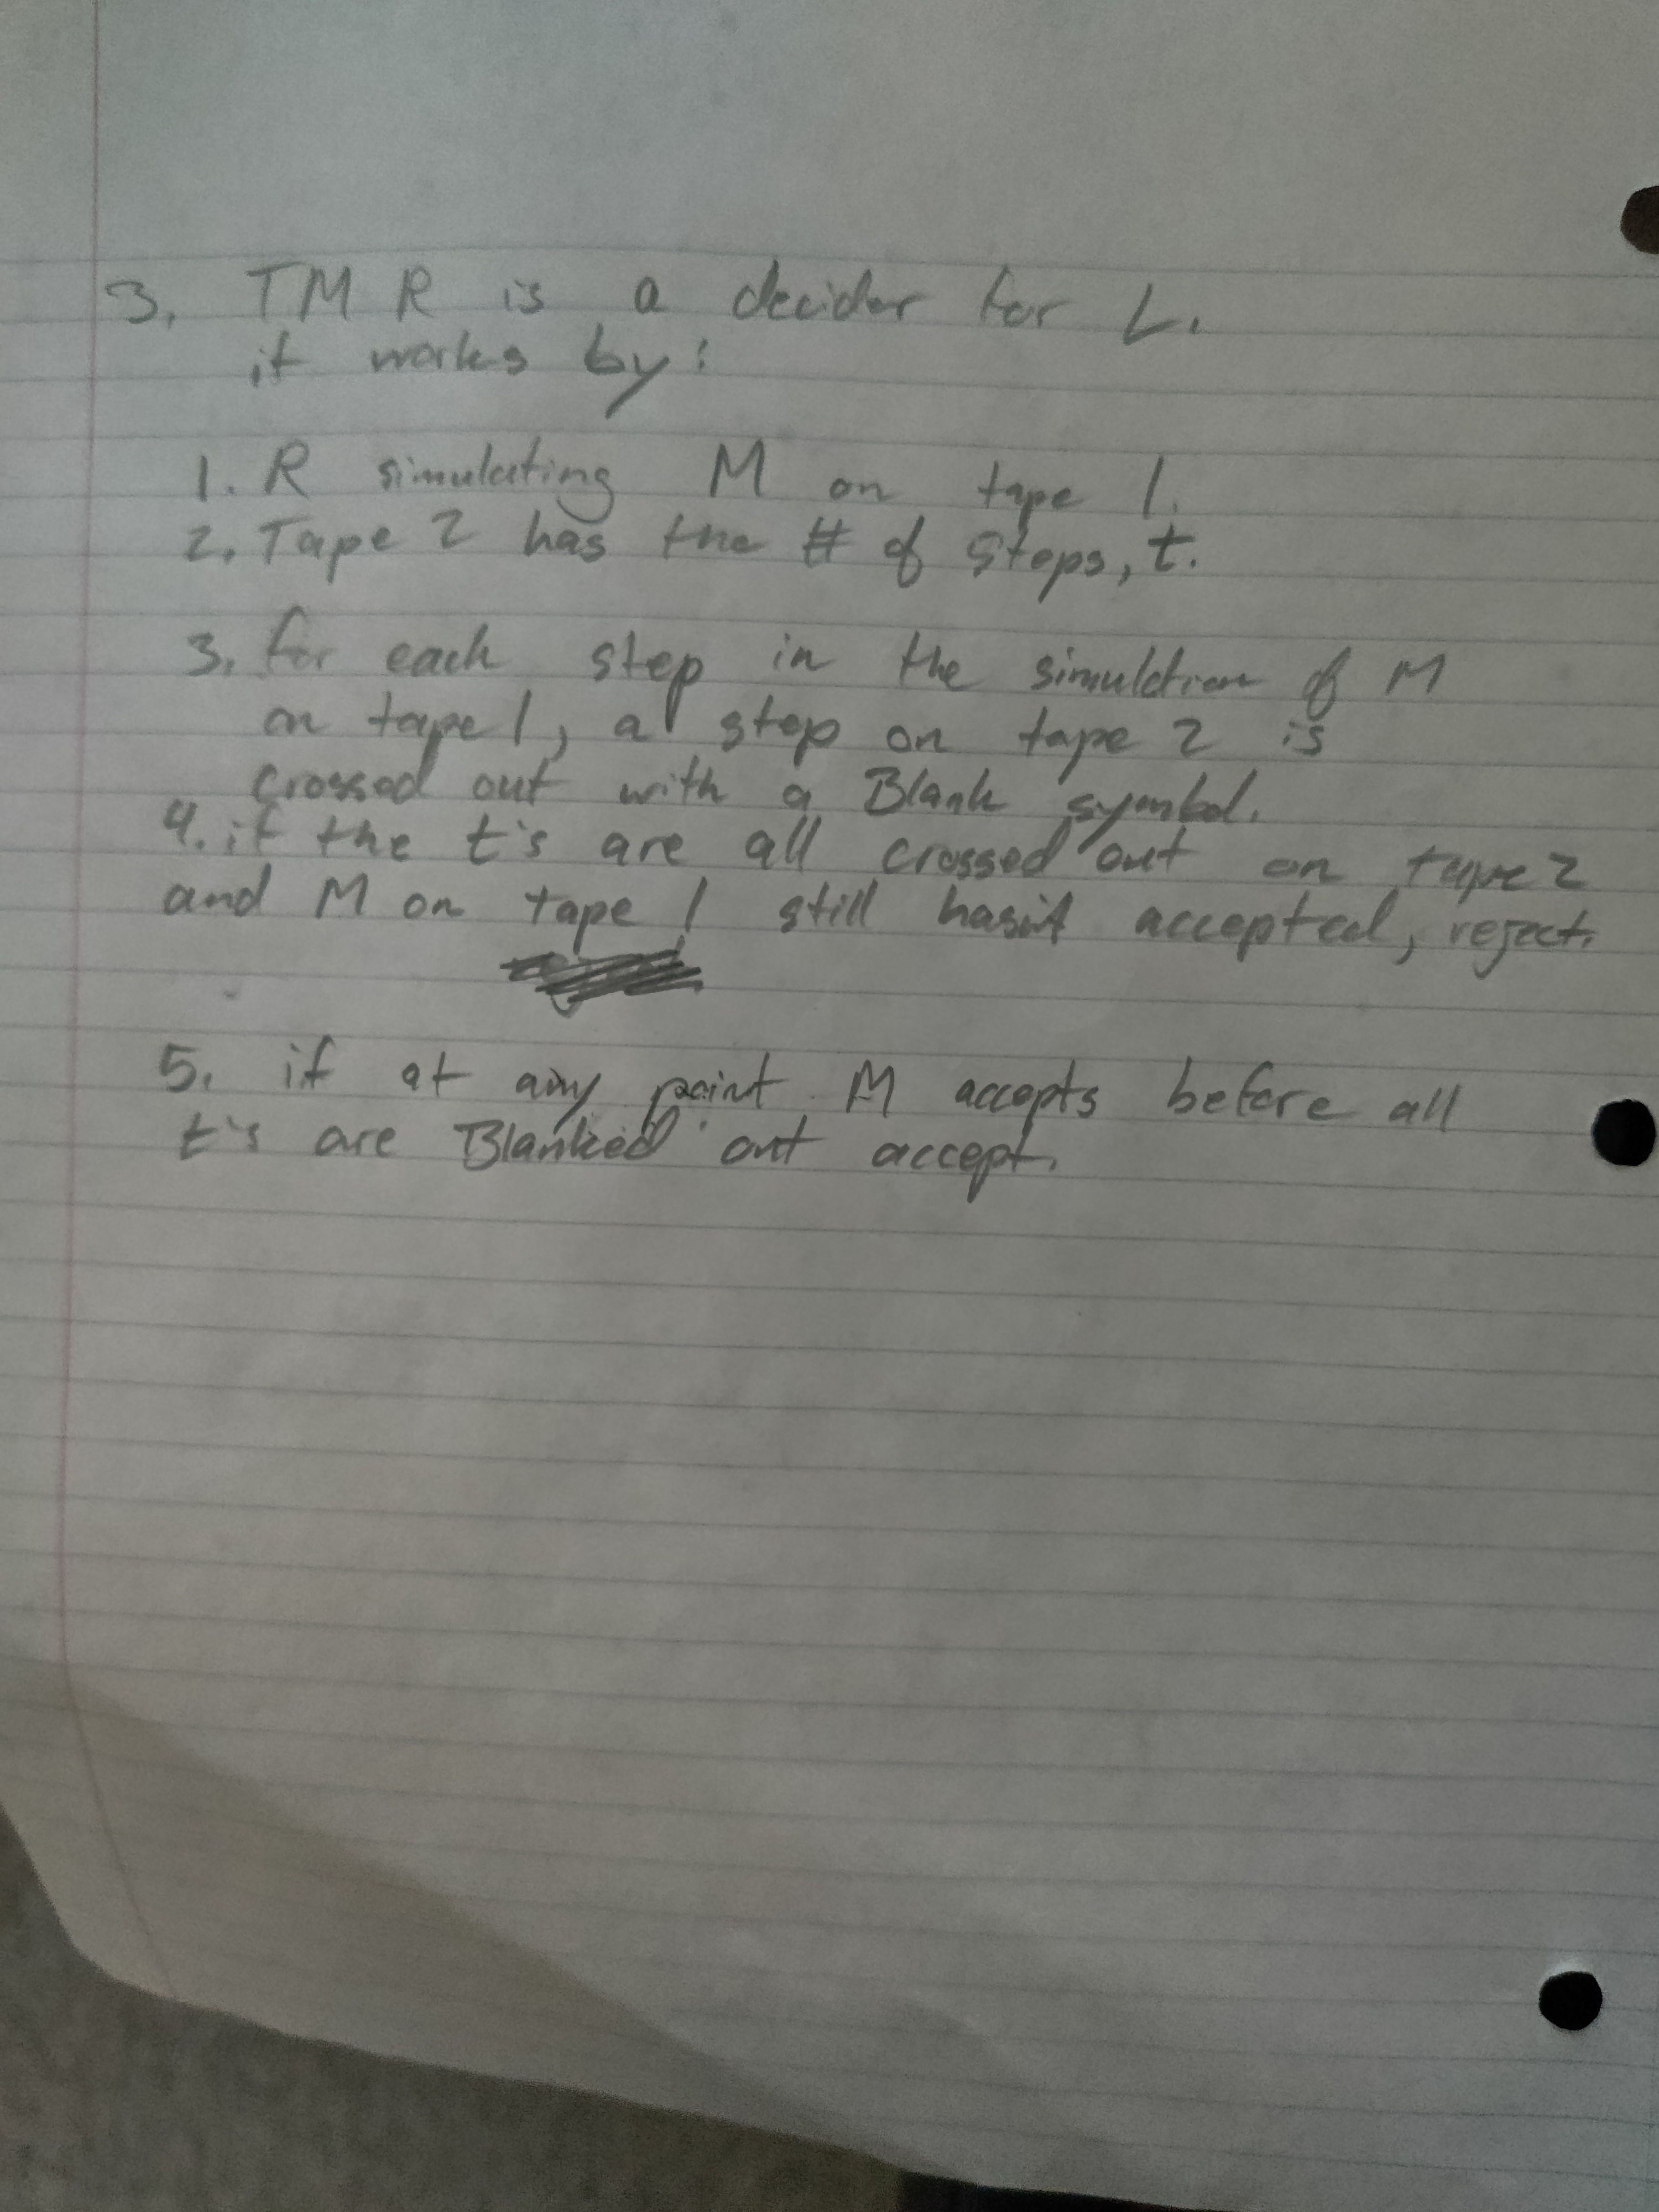 3. TM R is a decider for L.
it works by:
1. R simulating M on tape 1.
2. Tape 2 has the # of steps, t.
3. for each step in the simulation of M
on tape 1, a step on tape 2 is
crossed out with a Blank symbol.
4. if the t's are all crossed out on tape 2
and M on tape 1 still hasn't accepted, reject.
5. if at any point M accepts before all
t's are Blanked out accept.